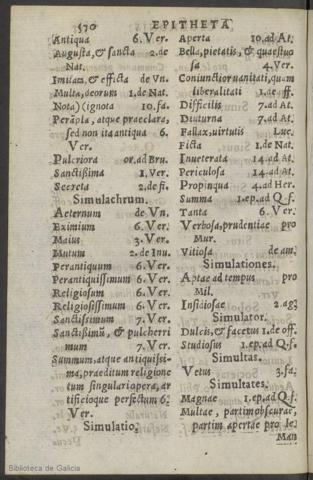 570 EPITHETA
Antiqua 6. Ver.
Augusta, & sancta 2. de
Nat.
Imitata, & efficta de Vn.
Multa, deorum 1. de Nat.
Nota) (ignota 10. fa.
Perāpla, atque præclara,
sed non ita antiqua 6.
Ver.
Pulcriora or. ad Bru.
Sanctißima 1. Ver.
Secreta 2. de fi.
Simulachrum.
Aeternum de Vn.
Eximium 6. Ver.
Maius 3. Ver.
Mutum 2. de Inu.
Perantiquum 6. Ver.
Perantiquissimum 6. Ver.
Religiosum 6. Ver.
Religiosissimum 6. Ver.
Sanctissimum 7. Ver.
Sanctißimū, & pulcherri
mum 7. Ver.
Summum, atque antiquissi-
ma, præditum religione
tum singulari opera, ar
tificioque perfectum 6.
Ver.
Simulatio.
Aperta 10. ad At.
Bella, pietatis, & quæstuo
sa 4. Ver.
Coniunctior vanitati, quam
liberalitati 1. de off.
Difficilis 7. ad At.
Diuturna 7. ad At.
Fallax, uirtutis Luc.
Ficta 1. de Nat.
Inueterata 14. ad At.
Periculosa 14. ad At.
Propinqua 4. ad Her.
Summa 1. ep. ad Q. f.
Tanta 6. Ver.
Verbosa, prudentiæ pro
Mur.
Vitiosa de am.
Simulationes.
Aptæ ad tempus pro
Mil.
Insidiosæ 2. ag.
Simulator.
Dulcis, & facetus 1. de off.
Studiosus 1. ep. ad Q. f.
Simultas.
Vetus 3. fa.
Simultates.
Magnæ 1. ep. ad Q. f.
Multæ, partim obscuræ,
partim apertæ pro le.
Man
Biblioteca de Galicia